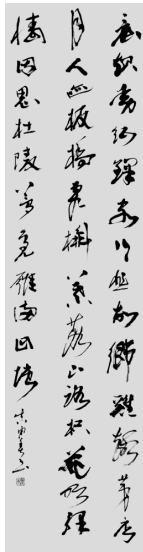 晨起動征鐸客行悲故鄉雞聲茅店
月人迹板橋霜槲葉落山路枳花明驛
墻因思杜陵夢鳧雁滿回塘